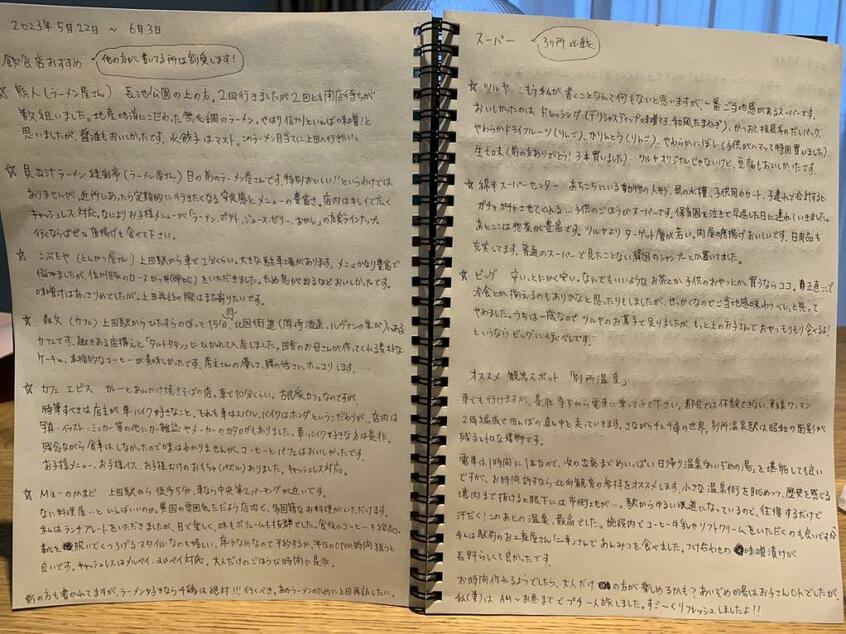 2023年5月22日 ~ 6月3日
飲食店おすすめ 他の方が書いてる所は割愛します!
☆ 熊人(ラーメン屋さん) 長池公園の上の方。2回行きましたが2回とも開店待ちが
数組いました。地産地消にこだわった無化調のラーメン。やはり信州といえば味噌!と
思いましたが、醤油もおいしかったです。水餃子はマスト。このラーメン目当てに上田へ行きたい。
ラーメン (ラーメン屋さん) 目の前のラーメン屋さんです。特別おいしい!!というわけでは
ありませんが、近所にあったら定期的に行きたくなる安定感とメニューの豊富さ。店内はキレイで広く
キャッシュレス対応。なによりお子様メニューが「ラーメン、ポテト、ジュース、ゼリー、おかし」の ラインナップ。
行くならばぜひ唐揚げも食べて下さい。
☆ こぶたや(とんかつ屋さん) 上田駅から車で2分くらい。大きな駐車場があります。メニューかなり豊富で
悩みましたが、信州豚のロースかつ をいただきました。ため息が出るほどおいしかったです。
味噌汁はあさりでしたが、上田再訪の際はまた寄りたいです。
☆ 森文(カフェ) 上田駅からひたすらのぼって15分。北国街道( 酒造、ルヴァンの並び)にある
カフェです。趣きある店構えと「タルトタタン」にひかれて入店しました。田舎のお母さんが作ってくれる素朴な
ケーキと、本格的なコーヒーが美味しかったです。店主さんの優しさ、 にホッコリします。
☆ カフェ エピス カレーとあんかけ焼きそばの店。車で10分くらい。古民家カフェなのですが、
特筆すべきは店主が車・バイク好きなこと。それも車はスバル、バイクはホンダというこだわりが… 店内は
写真・イラスト・ミニカー等の他にカー雑誌やメーカーのカタログもありました。車・バイク好きな方は是非。
残念ながら食事はしなかったので味はわかりませんが、コーヒーとパフェはおいしかったです。
お子様メニュー、お子様イス、お子様むけのおもちゃ(パズル)ありました。キャッシュレス対応。
☆ Ma-のかまど 上田駅から徒歩5分、車なら中央第2パーキングが近いです。
なに料理屋…といえばいいのか。異国の雰囲気ただよう店内で、多国籍なお料理がいただけます。
私はランチプレートをいただきましたが、目で楽しく、味もボリュームも抜群でした。食後のコーヒーも絶品。
靴を脱いでくつろげるスタイルなのも嬉しい。席少なめなので予約するか、平日のopen時間狙うと
良いです。キャッシュレスはメルペイ・auペイ対応。大人だけのごほうび時間に是非。
前の方も書かれてますが、ラーメン好きなら千鶴は絶対!!!行くべき。あのラーメンのために上田再訪したい。
スーパー 3ヶ所比較
☆ ツルヤ こちら私が書くことなんて何もないと思いますが、一番ご当地感があるスーパーです。
おいしかったのは、ドレッシング(デリシャスディップ味噌マヨ、和風たまねぎ)、かつおと根昆布のだしパック、
やわらかドライフルーツ(りんご)、かりんとう(りんご)、やわらかにぼし(子供がハマって時間買いました)
生七味(前の方ありがとう!3本買いました) ツルヤオリジナルじゃないけど、豆腐もおいしかったです。
☆ 綿半スーパーセンター あちこちにいる動物の人形、魚の水槽、子供用のカート、子連れで会計すると
ガチャガチャさせてくれる…子供のごほうびスーパーです。保育園を泣きで早退した日に連れていきました。
あとここは惣菜が豊富です。ツルヤよりターゲット層が若い。肉屋の唐揚げおいしいです。日用品も
充実してます。普通のスーパーで見たことない韓国のシャンプーとか置いてました。
☆ ビッグ 安い、とにかく安い。なんでもいいようなお茶とか子供のおやつとか買うならココ。正直ここで
冷食とか揃えるのもありかなと思ったりもしましたが、せっかくなのでご当地感味わうべし、と思って
やめました。うちは一歳なのでツルヤのお菓子で足りましたが、もっと上のお子さんでおやつもりもり食べるよ!
というならビッグに行くべしです。
オススメ 観光スポット 「別所温泉」
車でも行けますが、是非寺下から電車に乗ってみて下さい。都会では体験できない、単線ワンマン
2両編成で田んぼの真ん中を走っていきます。さながら千と千尋の世界。別所温泉駅は昭和の面影が
残るレトロな建物です。
電車は1時間に1本なので、次の出発までめいっぱい日帰り温泉「あいぞめの湯」を堪能しても良い
ですが、お時間許すなら北向観音の参拝をオススメします。小さな温泉街を眺めつつ、歴史を感じる
境内まで抜けると眼下には市街地が…。駅からゆるい坂道になっているので、往復するだけで
汗だく!このあとの温泉、最高でした。施設内でコーヒー牛乳やソフトクリームをいただくのも良いですが
私は駅前のお二階屋さん「 」さんであんみつを食べました。つけ合わせの味噌漬けが
長野らしくて良かったです。
お時間作れるようでしたら、大人だけの方が楽しめるかも?あいぞめの湯はお子さんOKでしたが、
私(妻)はAM~お昼まででプチ一人旅しました。すご~くリフレッシュしましたよ!!